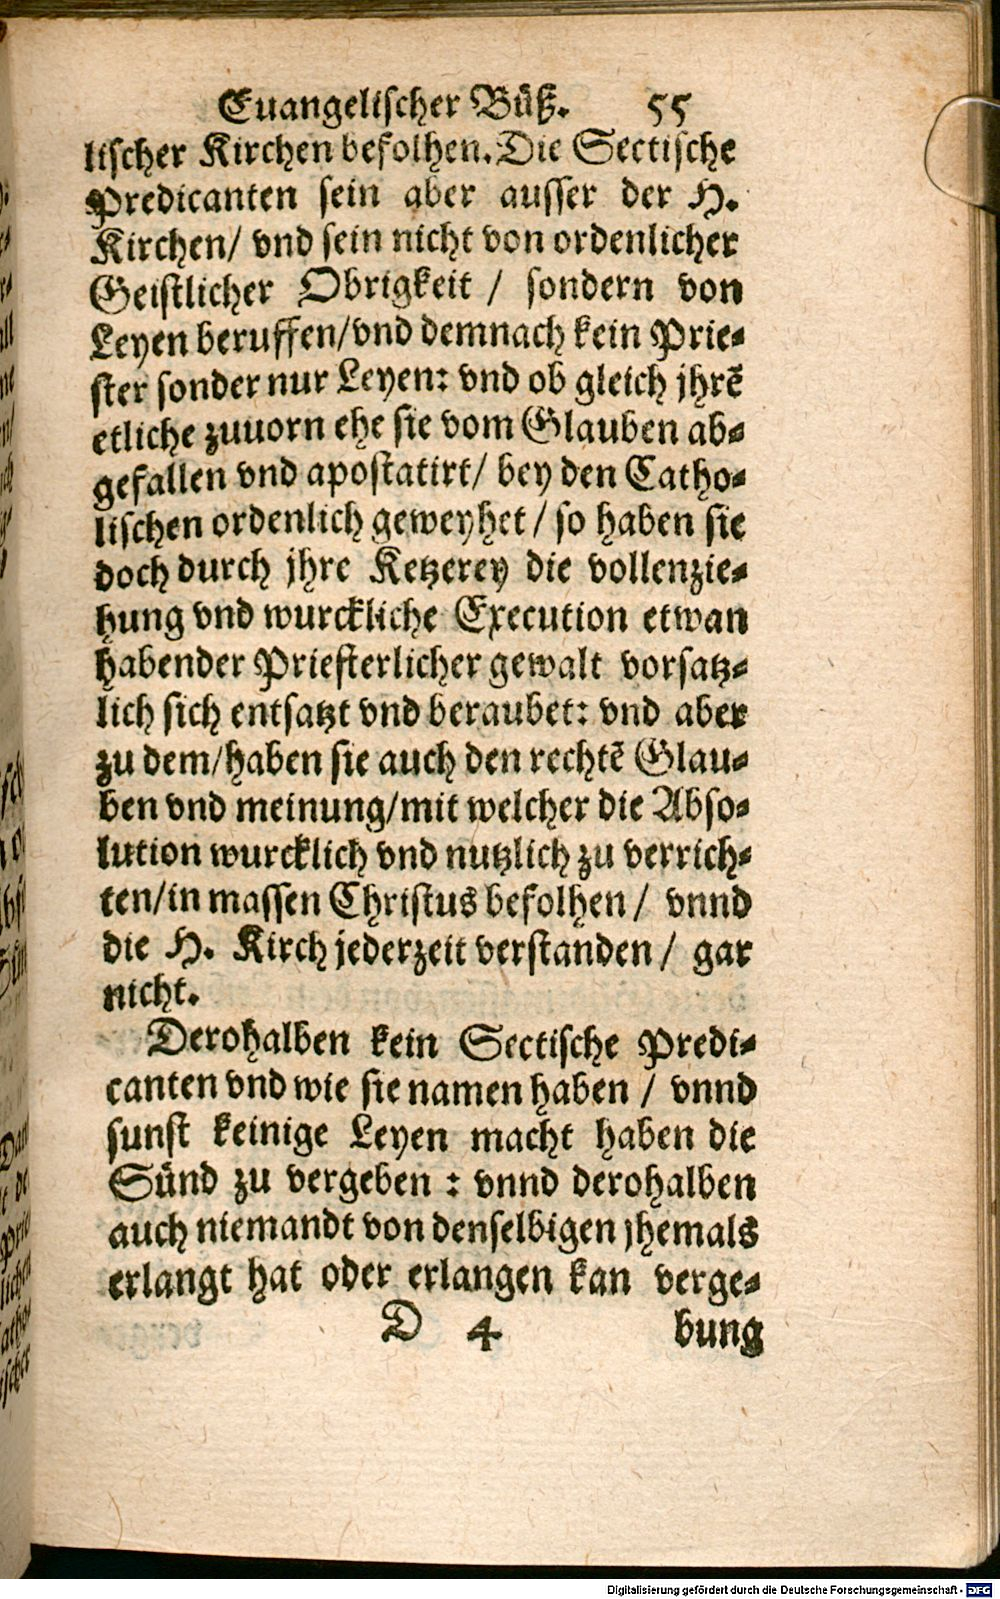 Euangelischer Büß. 55
lischer Kirchen befolhen. Die Sectische
Predicanten sein aber ausser der H.
Kirchen/ vnd sein nicht von ordenlicher
Geistlicher Obrigkeit / sondern von
Leyen beruffen/vnd demnach kein Prie-
ster sonder nur Leyen: vnd ob gleich jhrẽ
etliche zuuorn ehe sie vom Glauben ab-
gefallen vnd apostatirt/ bey den Catho-
lischen ordenlich geweyhet / so haben sie
doch durch jhre Ketzerey die vollenzie-
hung vnd wurckliche Execution etwan
habender Priesterlicher gewalt vorsatz-
lich sich entsatzt vnd beraubet: vnd aber
zu dem/haben sie auch den rechtẽ Glau-
ben vnd meinung/mit welcher die Abso-
lution wurcklich vnd nutzlich zu verrich-
ten/in massen Christus befolhen / vnnd
die H. Kirch jederzeit verstanden / gar
nicht.
Derohalben kein Sectische Predi-
canten vnd wie sie namen haben / vnnd
sunst keinige Leyen macht haben die
Sünd zu vergeben : vnnd derohalben
auch niemandt von denselbigen jhemals
erlangt hat oder erlangen kan verge-
D 4 bung
Digitalisierung gefördert durch die Deutsche Forschungsgemeinschaft - DFG